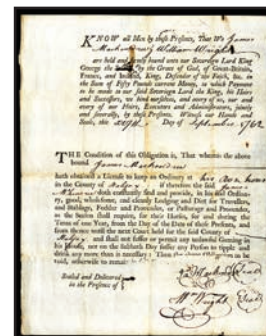 KNOW all Men by these Presents, That We James
William Wright
are held and firmly bound unto our Sovereign Lord King
George the by the Grace of God, of Great-Britain,
France, and Ireland, King, Defender of the Faith, &c. in
the Sum of Fifty Pounds current Money, to which Payment
to be made to our said Sovereign Lord the King, his Heirs
and Successors, we bind ourselves, and every of us, our and
every of our Heirs, Executors and Administrators, jointly
and severally, by these Presents. Witness our Hands and
Seals, this Day of September 1762
THE Condition of this Obligation is, That whereas the above
bound James
hath obtained a License to keep an Ordinary at his house
in the County of if therefore the said James
doth constantly find and provide, in his said Ordinary,
good, wholesome, and cleanly Lodging and Diet for Travellers,
and Stablage, Fodder and Provender, or Pasturage and Provender,
as the Season shall require, for their Horses, for and during the
Term of one Year, from the Day of the Date of these Presents, and
from thence until the next Court held for the said County of
and shall not suffer or permit any unlawful Gaming in
his House, nor on the Sabbath Day suffer any Person to tipple and
drink any more than is necessary: Then
void, otherwise to remain
Sealed and Delivered
in the Presence of
Wm Wright